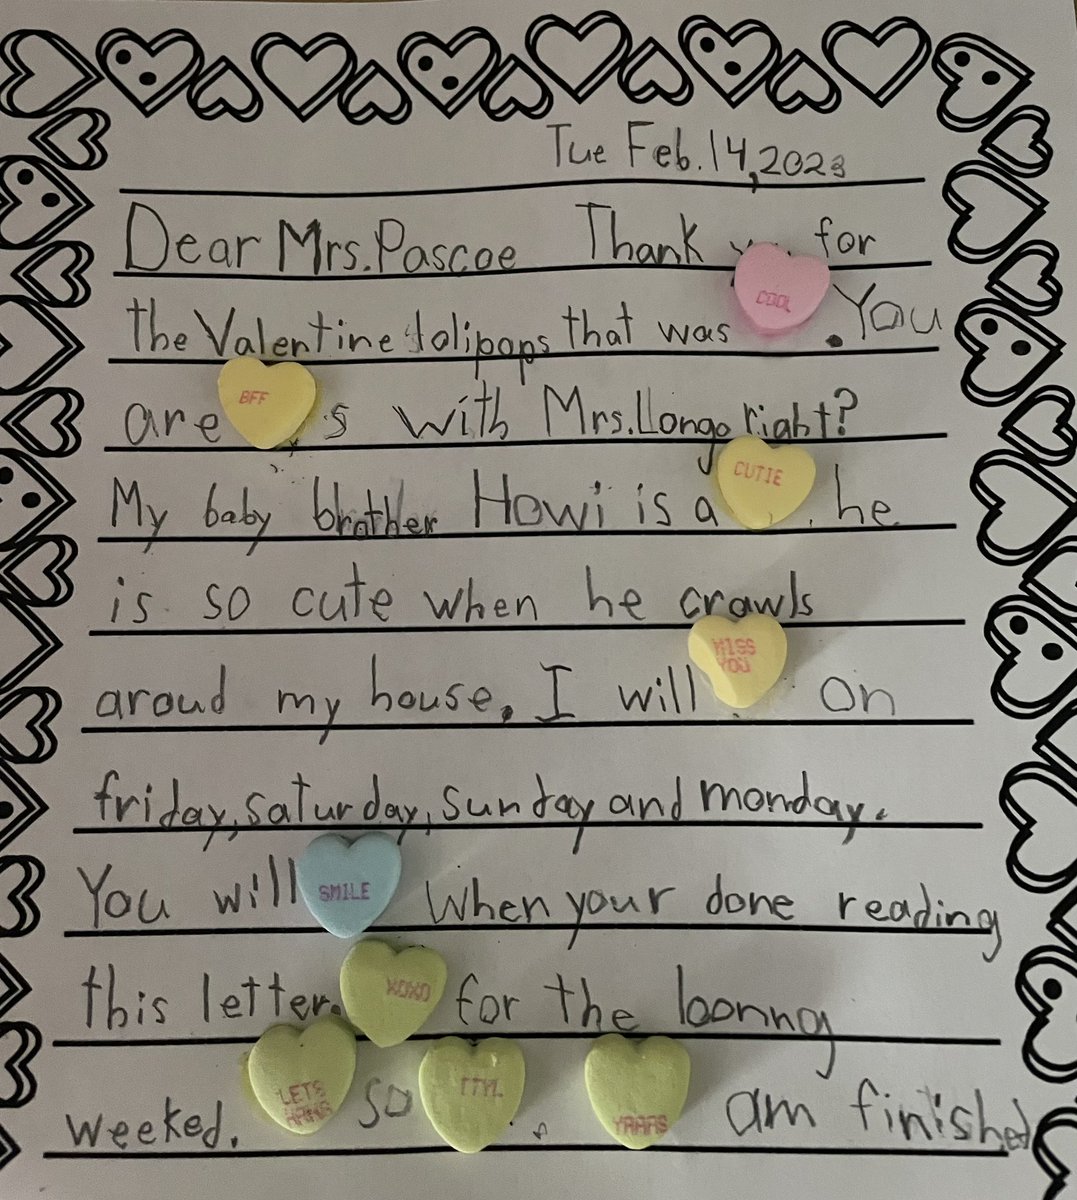 Tue Feb.14,2023
Dear Mrs.Pascoe Thank for
the Valentine lolipops that was COOL .You
are BFF s with Mrs.Llongo right?
My baby brother Howi is a CUTIE he
is so cute when he crawls
aroud my house. I will MISS YOU on
friday, saturday, sunday and monday.
You will SMILE When your done reading
this letter. XOXO for the loonng
weeked. LETS HANG so TTYL . YAAAS am finished